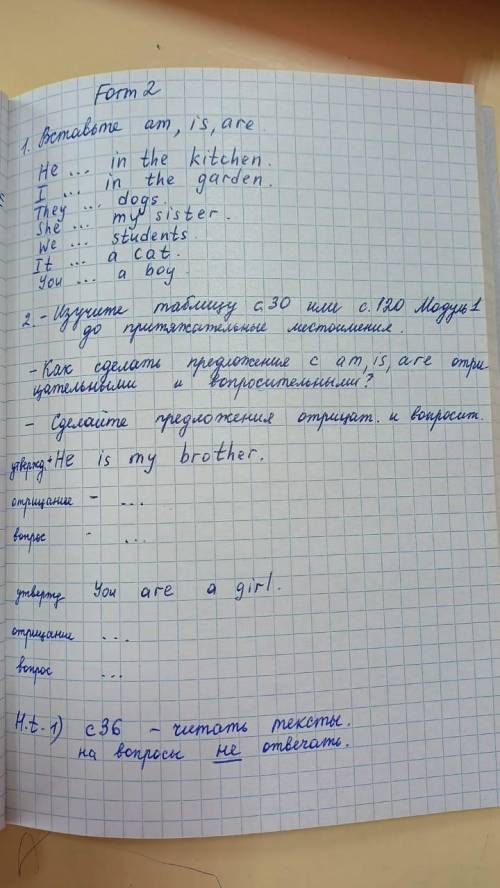 Form 2
1. Вставьте am, is, are.
He ... in the kitchen.
I ... in the garden.
They ... dogs.
She ... my sister.
We ... students.
It ... a cat.
You ... a boy.
2. - Изучите таблицу с.30 или с.120 Модуль 1
до притяжательные местоимения.
- Как сделать предложение с am, is, are отри
цательными и вопросительными?
- Сделайте предложения отрицат. и вопросит.
утвержд. + He is my brother.
отрицание - ...
вопрос - ...
утвержд You are a girl.
отрицание ...
вопрос ...
H.t. 1) с36 - читать тексты.
на вопросы не отвечать.